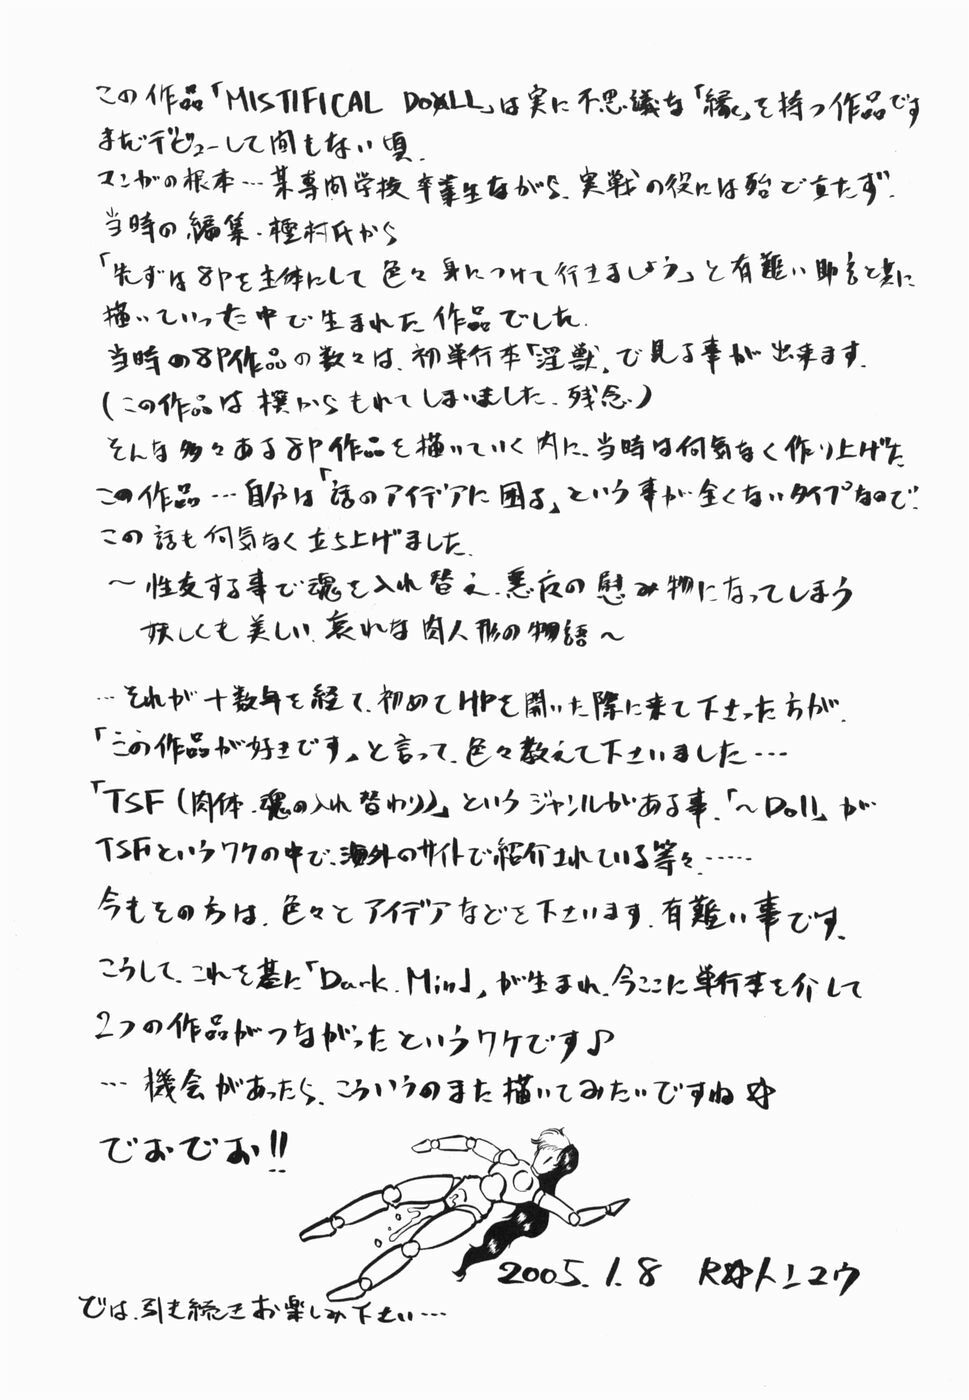 この作品「MISTIFICAL DOLL」は実に不思議な「縁」を持つ作品です
まだデビューして間もない頃、
マンガの根本…某専門学校卒業生ながら、実戦の役には殆ど立たず、
当時の編集・種村氏から
「先ずは8Pを主体にして色々身につけて行きましょう」と有難い助言と共に
描いていった中で生まれた作品でした。
当時の8P作品の数々は、初単行本「淫獣」で見る事が出来ます。
(この作品は撰からもれてしまいました、残念)
そんな多々ある8P作品を描いていく内に、当時は何気なく作り上げた
この作品…自分は「話のアイデアに困る」という事が全くないタイプなので、
この話も何気なく立ち上げました。
〜性交する事で魂を入れ替え、悪友の慰み物になってしまう
妖しくも美しい、哀れな肉人形の物語〜
…それが十数年を経て、初めてHPを開いた際に来て下さった方が、
「この作品が好きです」と言って、色々教えて下さいました…
「TSF(肉体・魂の入れ替わり)」というジャンルがある事、「〜Doll」が
TSFというワケの中で、海外のサイトで紹介されている等々……
今もその方は、色々とアイデアなどを下さいます。有難い事です。
こうして、これを基に「Dark Mind」が生まれ、今ここに単行本を介して
2つの作品がつながったというワケです♪
…機会があったら、こういうのまた描いてみたいですね☆
でおでお!!
2005.1.8
では、引き続きお楽しみ下さい…